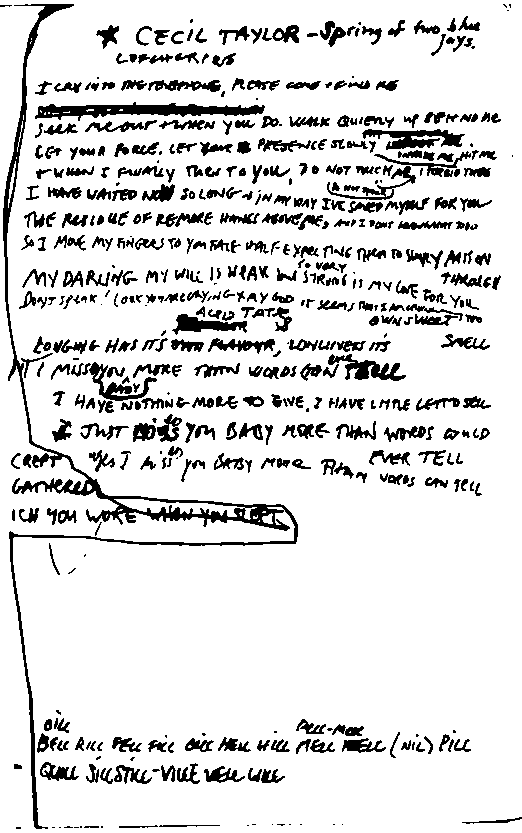 * CECIL TAYLOR - Spring of two blue jays.
I CRY INTO THE TELEPHONE, PLEASE COME + FIND ME
SEEK ME OUT + WHEN YOU DO. WALK QUIETLY UP BEHIND ME
LET YOUR FORCE. LET YOUR PRESENCE SLOWLY INVADE ME, HIT ME
+ WHEN I FINALLY TURN TO YOU, DO NOT TOUCH ME, I FORBID THEE
DO NOT TOUCH
I HAVE WAITED NOW SO LONG + IN MY WAY I'VE SAVED MYSELF FOR YOU
THE RESIDUE OF REMORE HANGS ABOVE ME, AND I DONT KNOW WHAT TO DO
SO I MOVE MY FINGERS TO YOUR FACE HALF EXPECTING THEM TO PASS ON THROUGH
MY DARLING MY WILL IS WEAK BUT SO VERY STRONG IS MY LOVE FOR YOU
DON'T SPEAK! LOOK YOU ARE CRYING + MY GOD IT SEEMS THAT I AM CRYING TOO
ACID TASTE
LONGING HAS IT'S FLAVOUR, LONLINESS IT'S OWN SWEET SMELL
I MISS YOU, BABY MORE THAN WORDS CAN EVER TELL
I HAVE NOTHING MORE TO GIVE, I HAVE LITTLE LEFT TO SELL
I JUST MISS YOU BABY MORE THAN WORDS COULD EVER TELL
Yes I MISS you BABY MORE THAN WORDS CAN TELL
CREPT
GATHERED
ICH YOU WORE WHEN YOU SLEPT
DILL DELL-MELL
BELL RILL FELL FILL DILL HELL HILL MELL (NIL) PILL
QUILL SILL STILL - VILLE WELL WILL